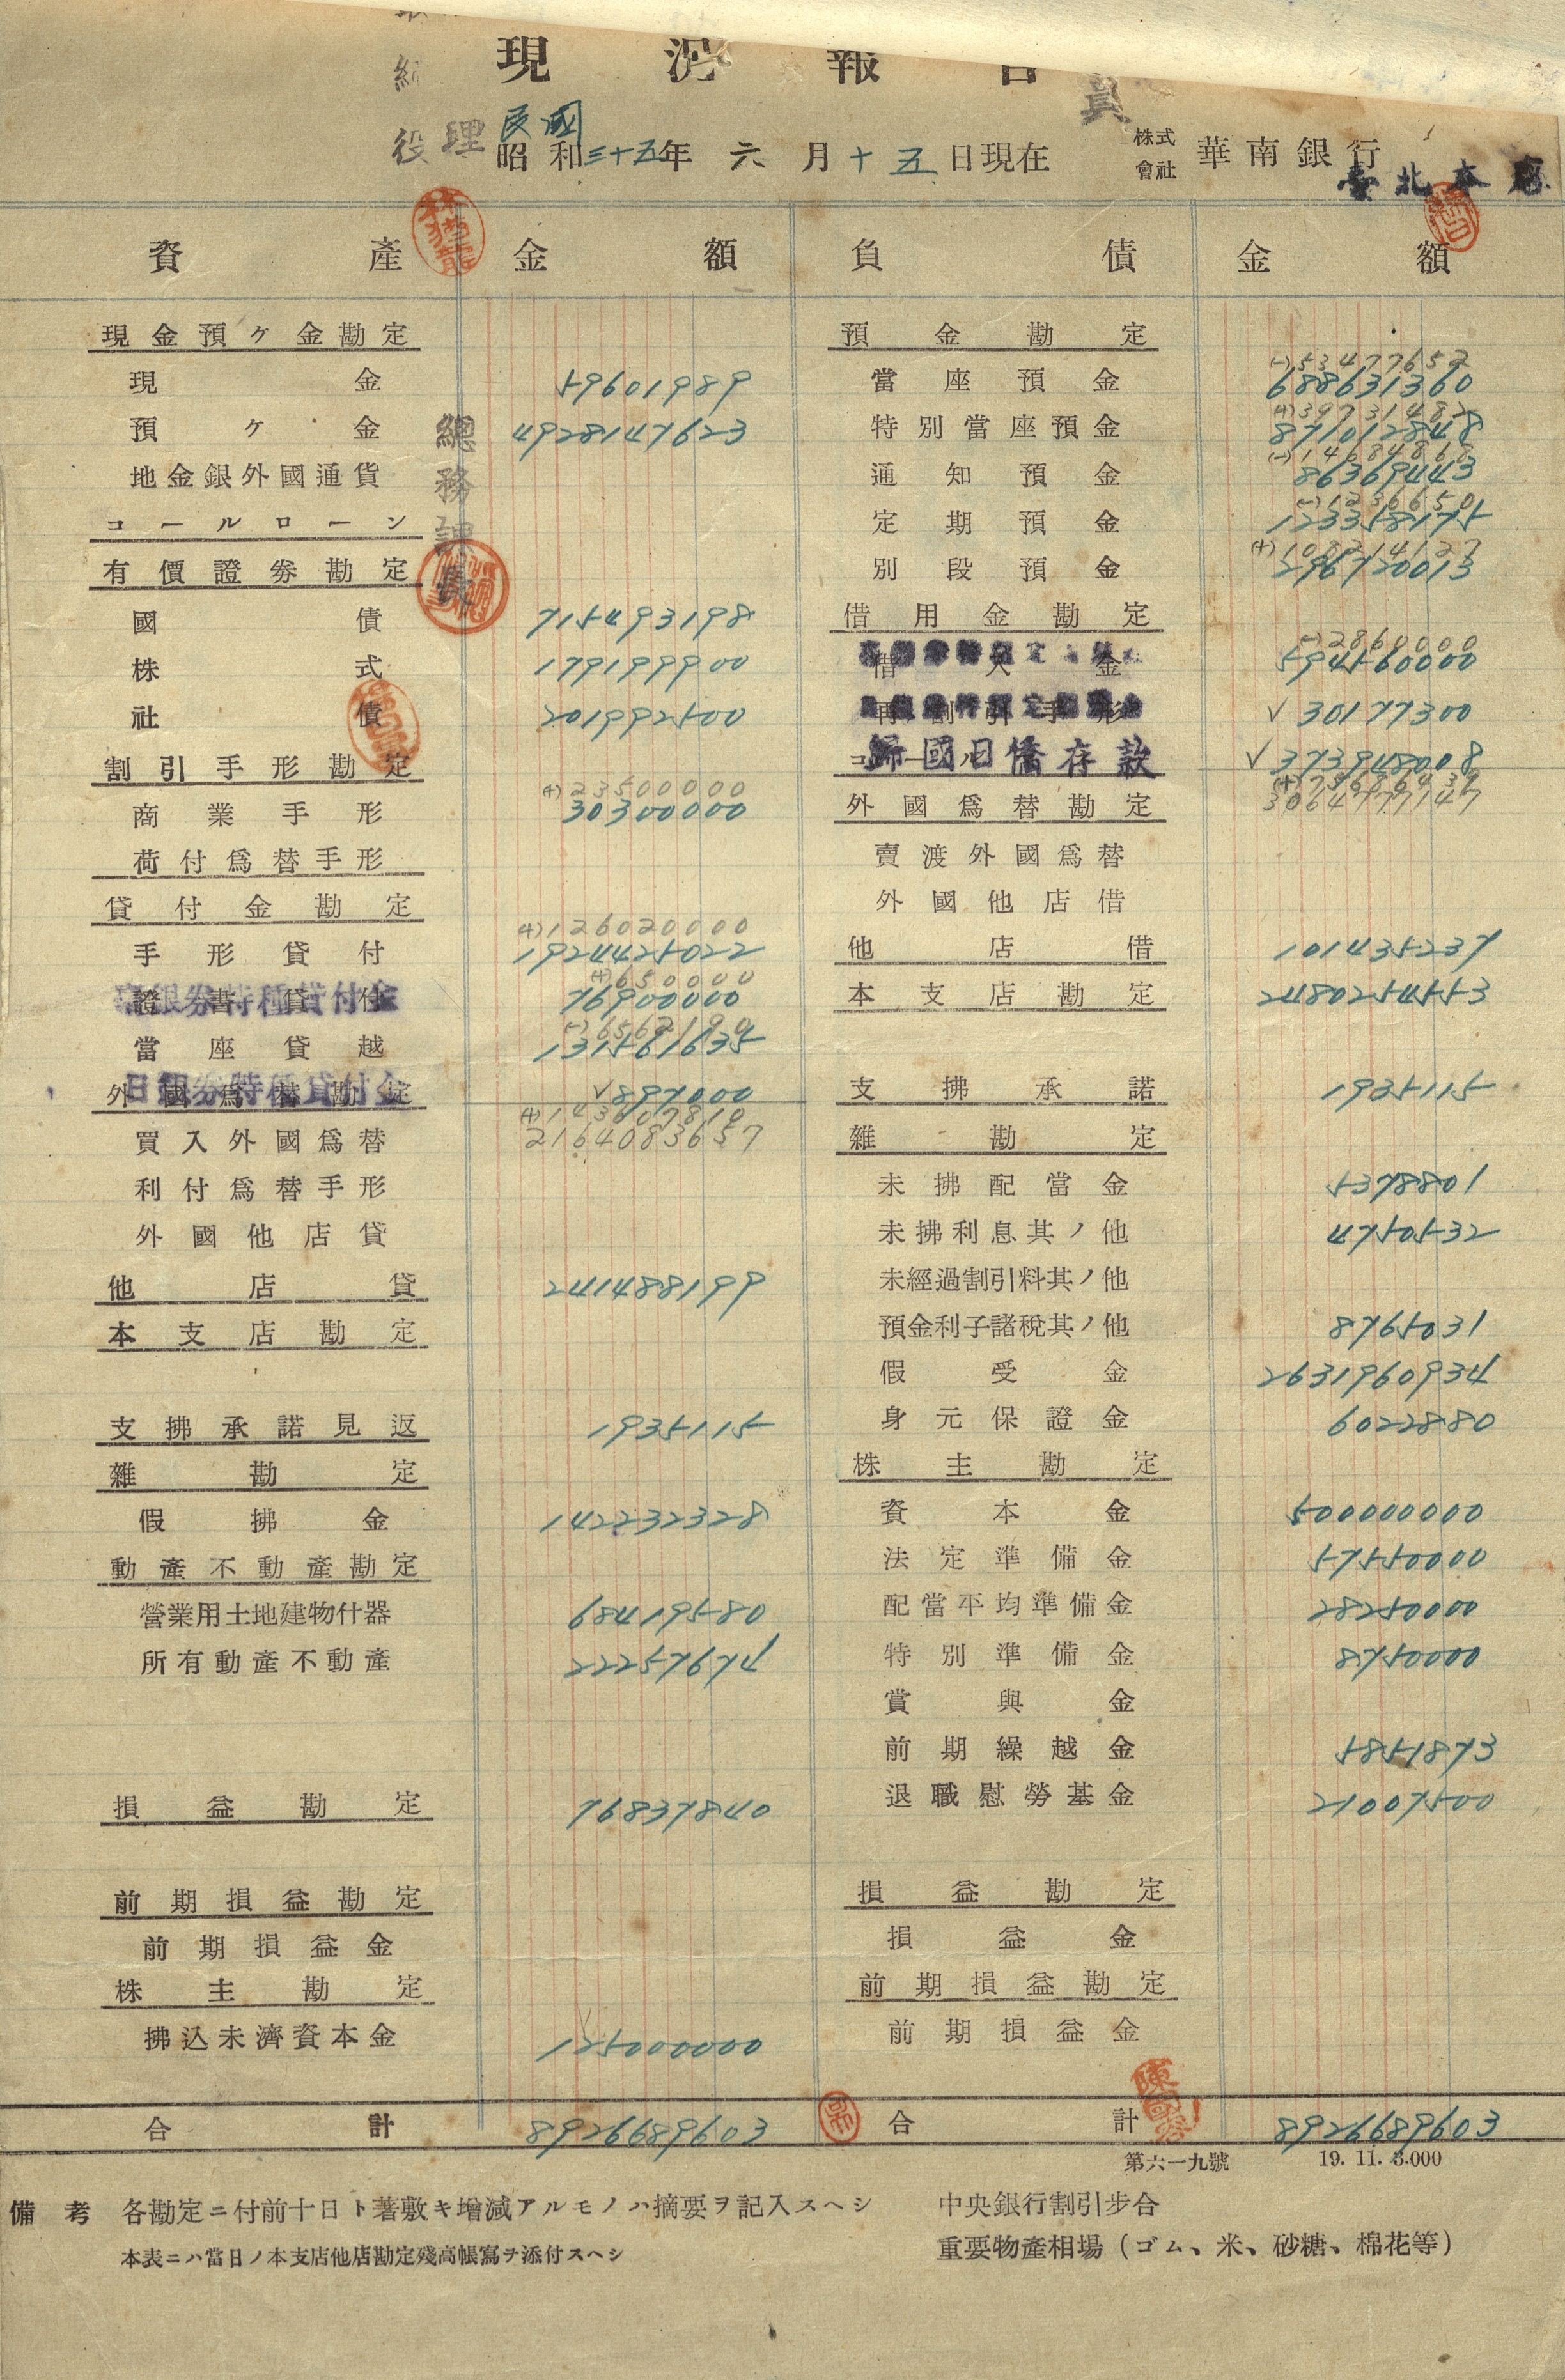 現況報告
民國
昭和三十五年 六月十五日現在
株式會社 華南銀行
臺北本店
資產 金額 負債 金額
現金預ケ金勘定
現金 59601989
預ケ金 4928147623
地金銀外國通貨
コールローン
有價證券勘定
國債 715493198
株式 179199900
社債 201992500
割引手形勘定
(+)23500000
商業手形 30300000
荷付爲替手形
貸付金勘定
(+)126020000
手形貸付 1924425022
(+)650000
證書貸付 76900000
(-)6562190
當座貸越 131561635
日銀券特種貸付金
外國爲替勘定 √897000
(+)143607810
2164083657
買入外國爲替
利付爲替手形
外國他店貸
他店貸 241488199
本支店勘定
支拂承諾見返 1935115
雜勘定
假拂金 142232328
動產不動產勘定
營業用土地建物什器 68419580
所有動產不動產 22257674
損益勘定 76837840
前期損益勘定
前期損益金
株主勘定
拂込未濟資本金 125000000
合計 8926689603
總務課長
預金勘定
(-)53477652
當座預金 688631360
(+)39731482
特別當座預金 871012848
(-)14684868
通知預金 86369443
(-)1236650
定期預金 123358175
(+)108214127
別段預金 296720013
借用金勘定
(-)2860000
借入金 594560000
再割引手形 √30177300
歸國日僑存款 √373948008
外國爲替勘定 3064777147
賣渡外國爲替
外國他店借
他店借 101435237
本支店勘定 2480254553
支拂承諾 1935115
雜勘定
未拂配當金 5378801
未拂利息其ノ他 4750532
未經過割引料其ノ他
預金利子諸稅其ノ他 8765031
假受金 2631960934
身元保證金 6022880
株主勘定
資本金 500000000
法定準備金 57550000
配當平均準備金 28250000
特別準備金 8750000
賞與金
前期繰越金 5851873
退職慰勞基金 21007500
損益勘定
損益金
前期損益勘定
前期損益金
合計 8926689603
第六一九號 19. 11. 3.000
備考 各勘定ニ付前十日ト著敷キ增減アルモノハ摘要ヲ記入スヘシ
本表ニハ當日ノ本支店他店勘定殘高帳寫ヲ添付スヘシ
中央銀行割引步合
重要物產相場(ゴム、米、砂糖、棉花等)